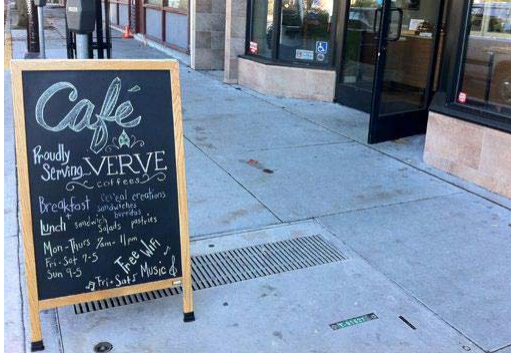 Café
Proudly
Serving VERVE
coffees
Breakfast cereal creations
+ sandwiches
burritos
Lunch sandwich
salads pastries
Mon-Thurs 7am-11pm
Fri-Sat 7-5
Sun 9-5
Free WiFi
Fri-Sats Music